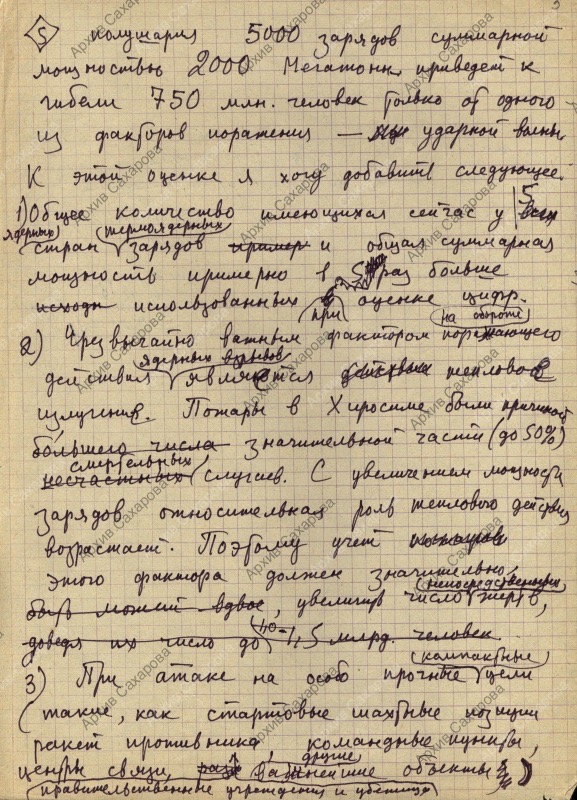 5 полушария 5000 зарядов суммарной
мощностью 2000 Мегатонн приведет к
гибели 750 млн. человек только от одного
из факторов поражения — ударной волны.
К этой оценке я хочу добавить следующее.
1) Общее количество имеющихся сейчас у 5
ядерных термоядерных
стран зарядов пример и общая суммарная
мощность примерно в 5 раз больше
исходн использованных при оценке цифр.
на обороте
2) Чрезвычайно важным фактором поражающего
ядерных взрывов
действия является тепловое
излучение. Пожары в Хиросиме были причиной
большего числа значительной части (до 50%)
смертельных
несчастных случаев. С увеличением мощности
зарядов относительная роль теплового действия
возрастает. Поэтому учет
этого фактора должен значительно
непосредственных
быть может вдвое, увеличить число жертв,
доведя их число до 1,5 млрд. человек.
компактные
3) При атаке на особо прочные цели
(такие, как стартовые шахтные позиции
ракет противника, командные пункты,
другие
центры связи, важнейшие объекты)
правительственные учреждения и убежища
Архив Сахарова